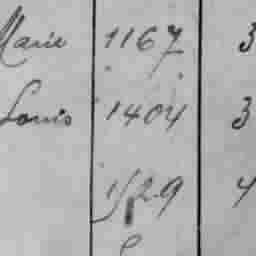 Marie 1167 3
Louis 1404 3
1529 4